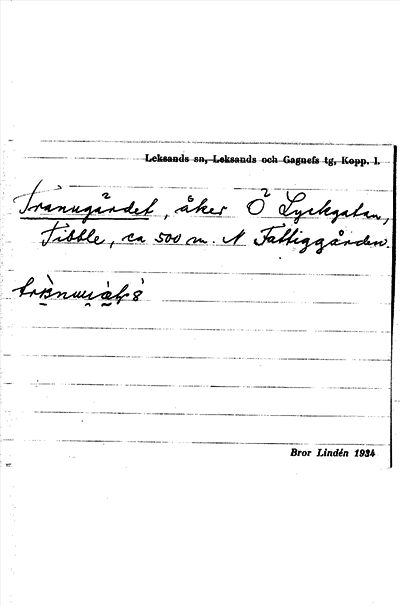 Leksands sn, Leksands och Gagnefs tg, Kopp. l.
Tranugårdet, åker Ö Lyckgatan,
Tibble, ca 500 m. N Fattiggården.
Bror Lindén 1934